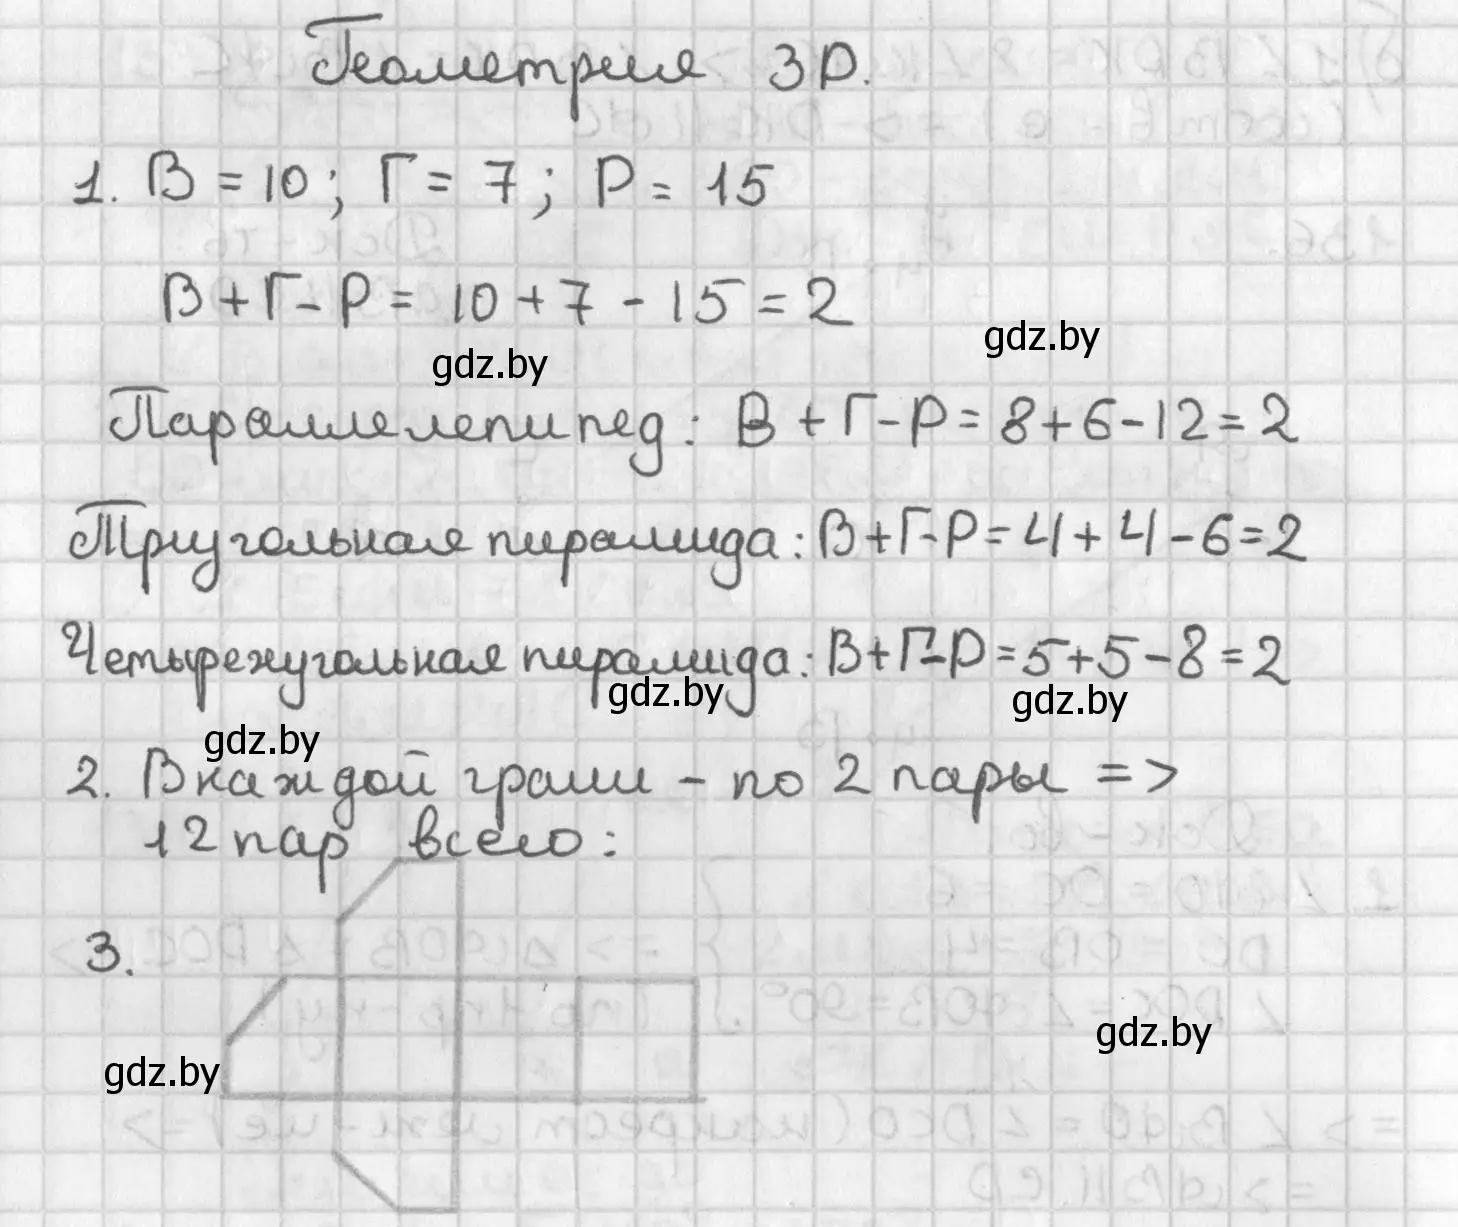 Геометрия 3D.
1. В = 10; Г = 7; Р = 15
В + Г - Р = 10 + 7 - 15 = 2
gdz.by
gdz.by
Параллелепипед: В + Г - Р = 8 + 6 - 12 = 2
Треугольная пирамида: В + Г - Р = 4 + 4 - 6 = 2
Четырехугольная пирамида: В + Г - Р = 5 + 5 - 8 = 2
gdz.by
gdz.by
gdz.by
2. В каждой грани - по 2 пары =>
12 пар всего:
3.
gdz.by
gdz.by